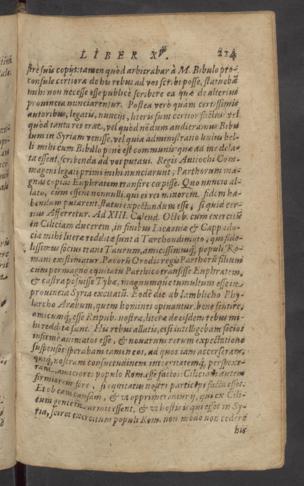 LIBER XV. 224
ferè suis copijs: tamen quòd arbitrabar à M. Bibulo pro
consule certiora de his rebus ad vos scribi posse, statuebam
mihi non necesse esse publicè scribere ea quæ de alterius
prouincia nunciarentur. Postea verò quàm certissimis
autoribus, legatis, nuncijs, literis sum certior factus: vel
quòd tanta res erat, vel quòd nõdum audieramus Bibu
lum in Syriam venisse, vel quia administratio huius bel
li mihi cum Bibulo pænè est communis: quæ ad me dela
ta essent, scribenda ad vos putaui. Regis Antiochi Com
magenis legati primi mihi nunciarunt, Parthorum ma
gnas copias Euphratem transire cœpisse. Quo nuncio al
lato, cum essent nonnulli, qui ei regi minorem fidem ha
bendam putarent, statui expectandum esse, si quid cer-
tius afferretur. Ad XIII. Calend. Octob. cum exercitũ
in Ciliciam ducerem, in finibus Licaoniæ & Cappado
ciæ mihi literæ redditæ sunt à Tarchondimoto, qui fide-
lissimus socius trans Taurum, amicissimusq́; populi Ro
mani existimatur. Pacorũ Orodis regis Parthorũ filium
cum permagno equitatu Parthico transisse Euphratem,
& castra posuisse Tybæ, magnumque tumultum esse in
prouincia Syria excitatũ. Eodẽ die ab Iamblicho Phy
larcho Arabum, quem homines opinantur benè sentire,
amicumq́; esse Reipub. nostræ, literæ de eisdem rebus mi
hi redditæ sunt. His rebus allatis, etsi intelligebam socios
infirmè animatos esse, & nouarum rerum expectatione
suspensos: sperabam tamen eos, ad quos iam accesseram,
quiq́; nostram consuetudinem integritatemq́; perspexe-
rant, amiciores populo Rom. esse factos: Ciliciam autem
firmiorem fore, si æquitatis nostræ particeps facta esset.
Et ob eam causam, & vt opprimerentur ij, qui ex Cili-
cum gente in armis essent, & vt hostis is qui esset in Sy-
ria, sciret exercitum populi Rom. non modo non cedere
his